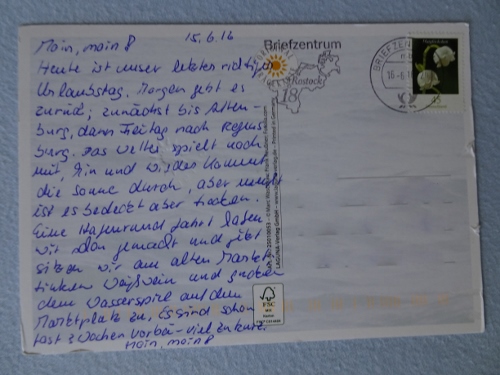 15.6.16
Moin, moin!
Heute ist unser letzter richtiger
Urlaubstag. Morgen geht es
zurück; zunächst bis Alten-
burg, dann Freitag nach Regens-
burg. Das Wetter spielt noch
mit, hin und wieder kommt
die Sonne durch, aber meist
ist es bedeckt aber trocken.
Eine Hafenrundfahrt haben
wir schon gemacht und jetzt
sitzen wir am alten Markt
trinken Weißwein und gucken
dem Wasserspiel auf dem
Marktplatz zu. Es sind schon
fast 2 Wochen vorbei - viel zu kurz.
Moin, moin!
Briefzentrum
Rostock
18
BRIEFZEN
16.6.1
45
LAGUNA Verlag GmbH
Printed in Germany
FSC